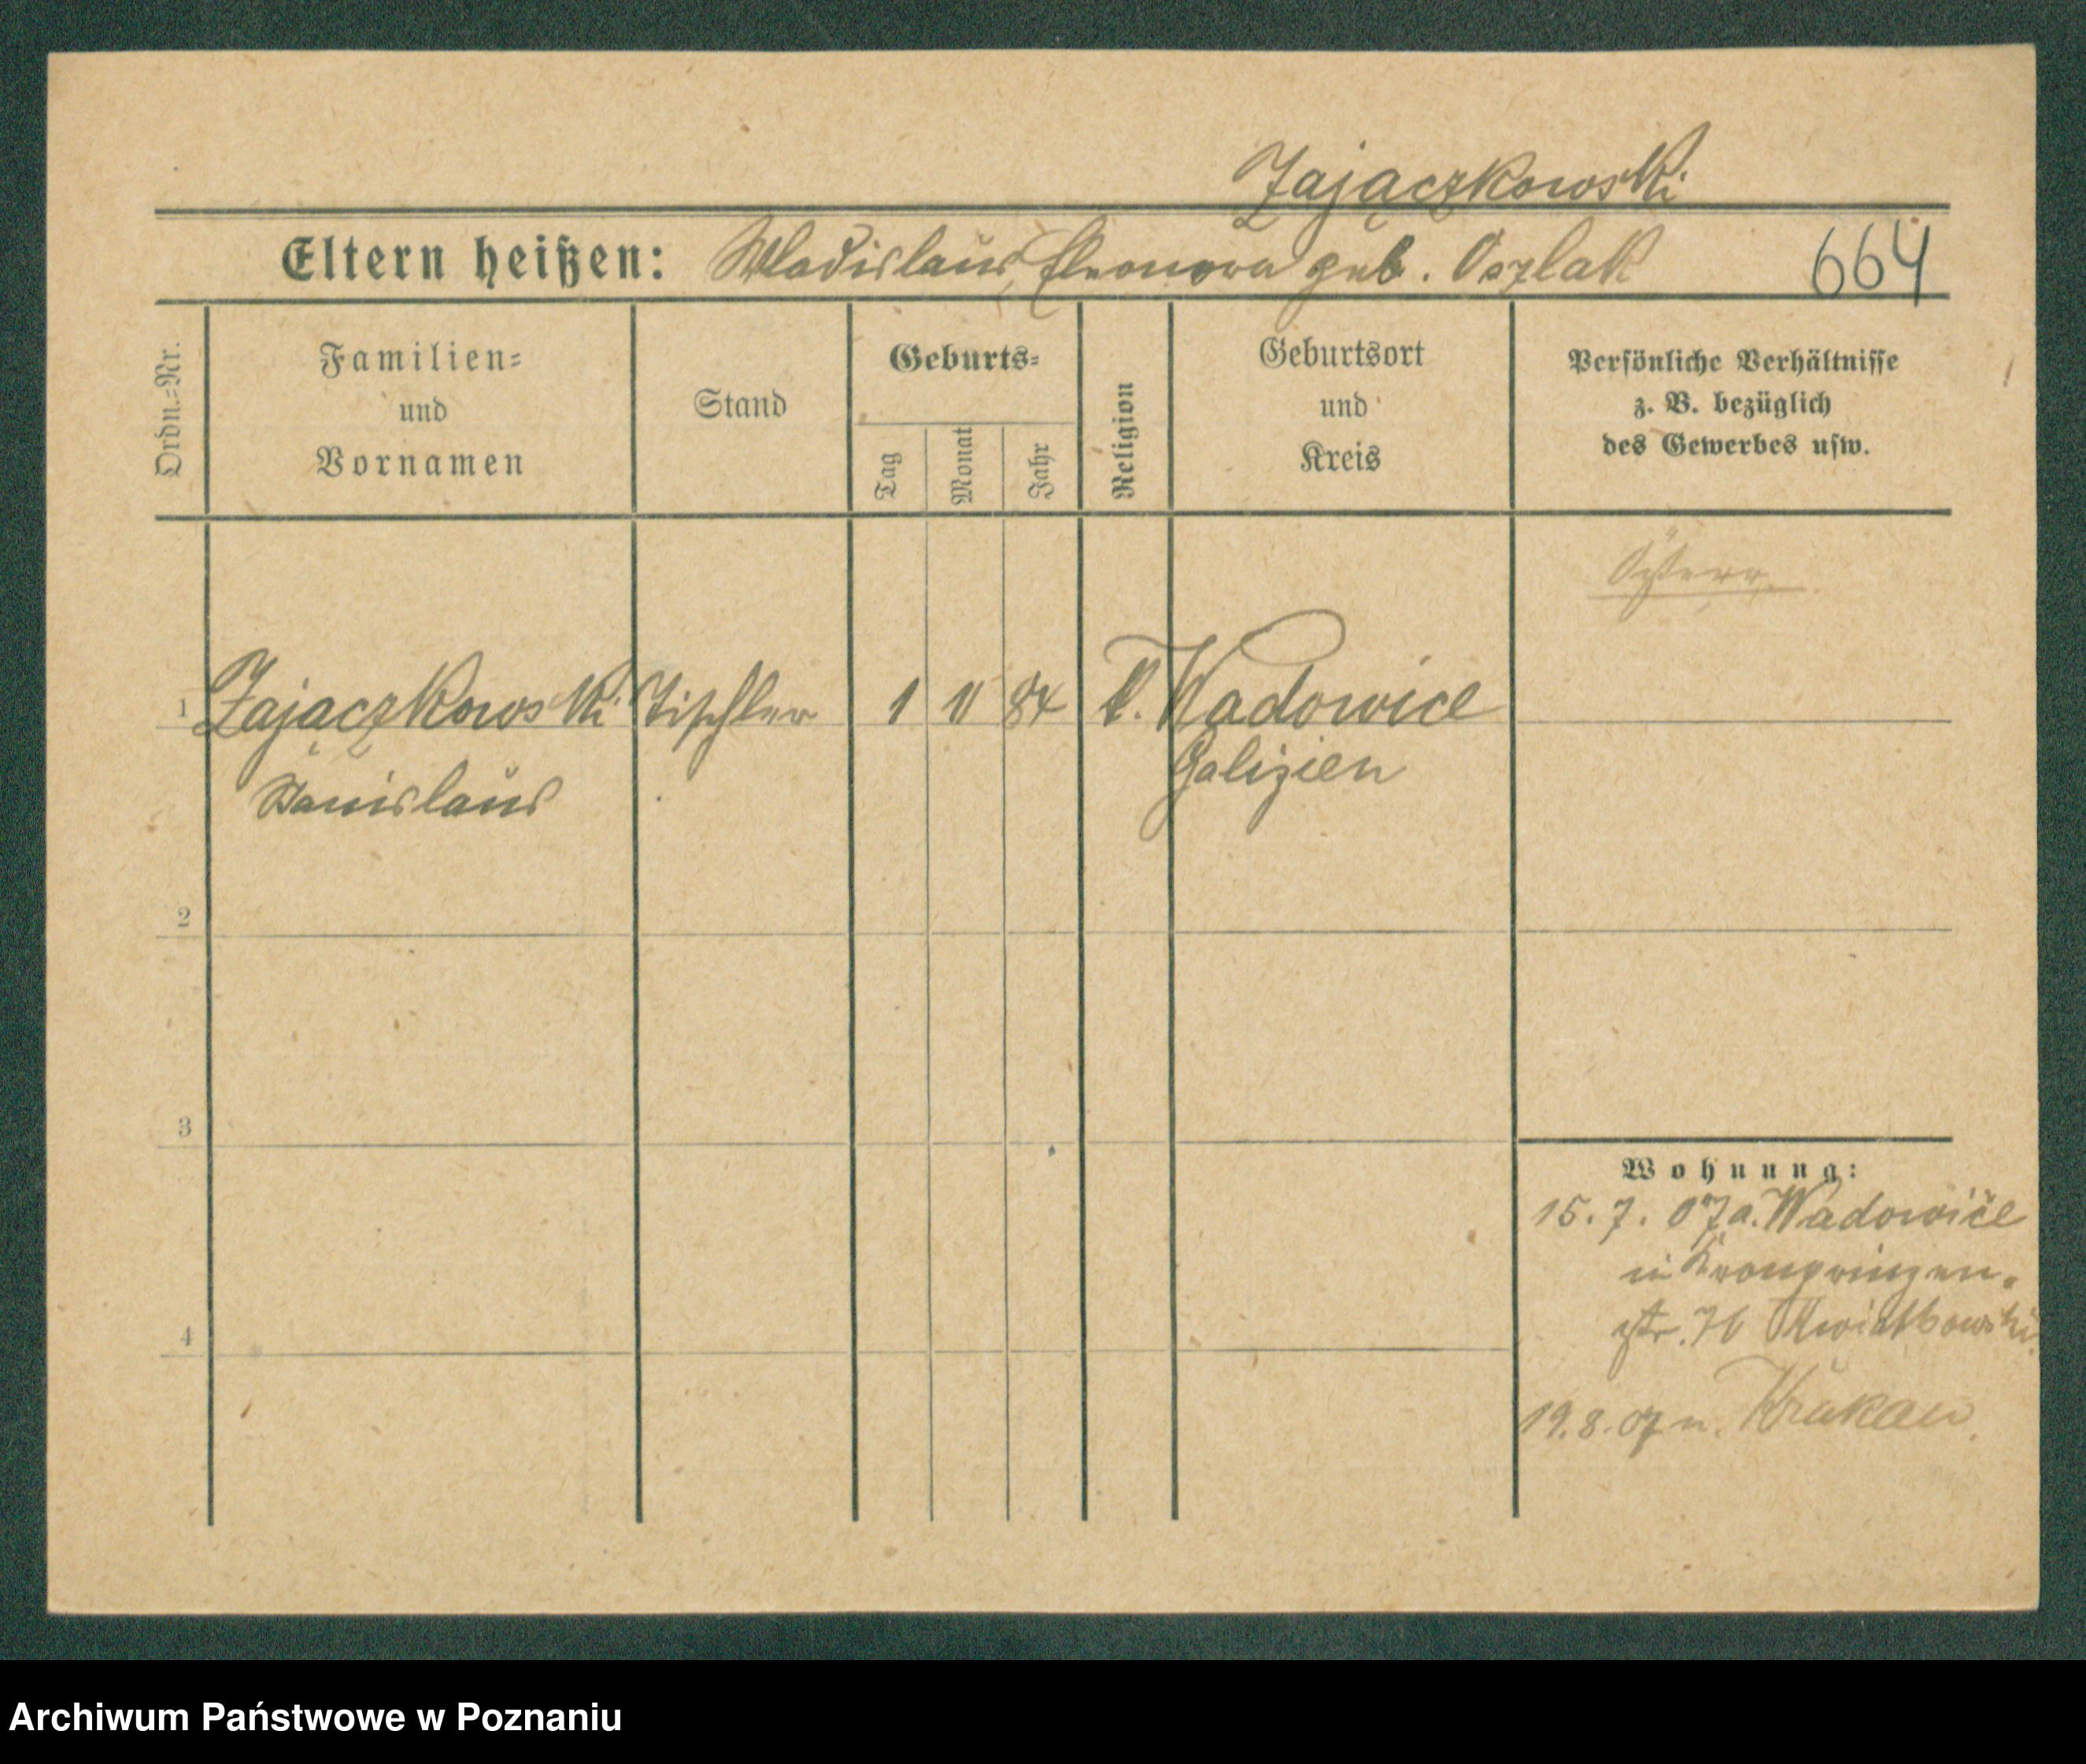 Zajączkowski
Eltern heißen: Wladislaus, Eleonora geb. Oszlak 664
Ordn.=Nr.
Familien=
und
Vornamen
Stand
Geburts=
Tag
Monat
Jahr
Religion
Geburtsort
und
Kreis
Persönliche Verhältnisse
z. B. bezüglich
des Gewerbes usw.
Österr.
1 Zajączkowski Tischler 1 11 84 k. Wadowice
Stanislaus
Galizien
2
3
4
Wohnung:
15. 7. 07 a. Wadowice
in Kronprinzen-
str. 76 Kwiatkowski
19. 8. 07 n. Krakau
Archiwum Państwowe w Poznaniu